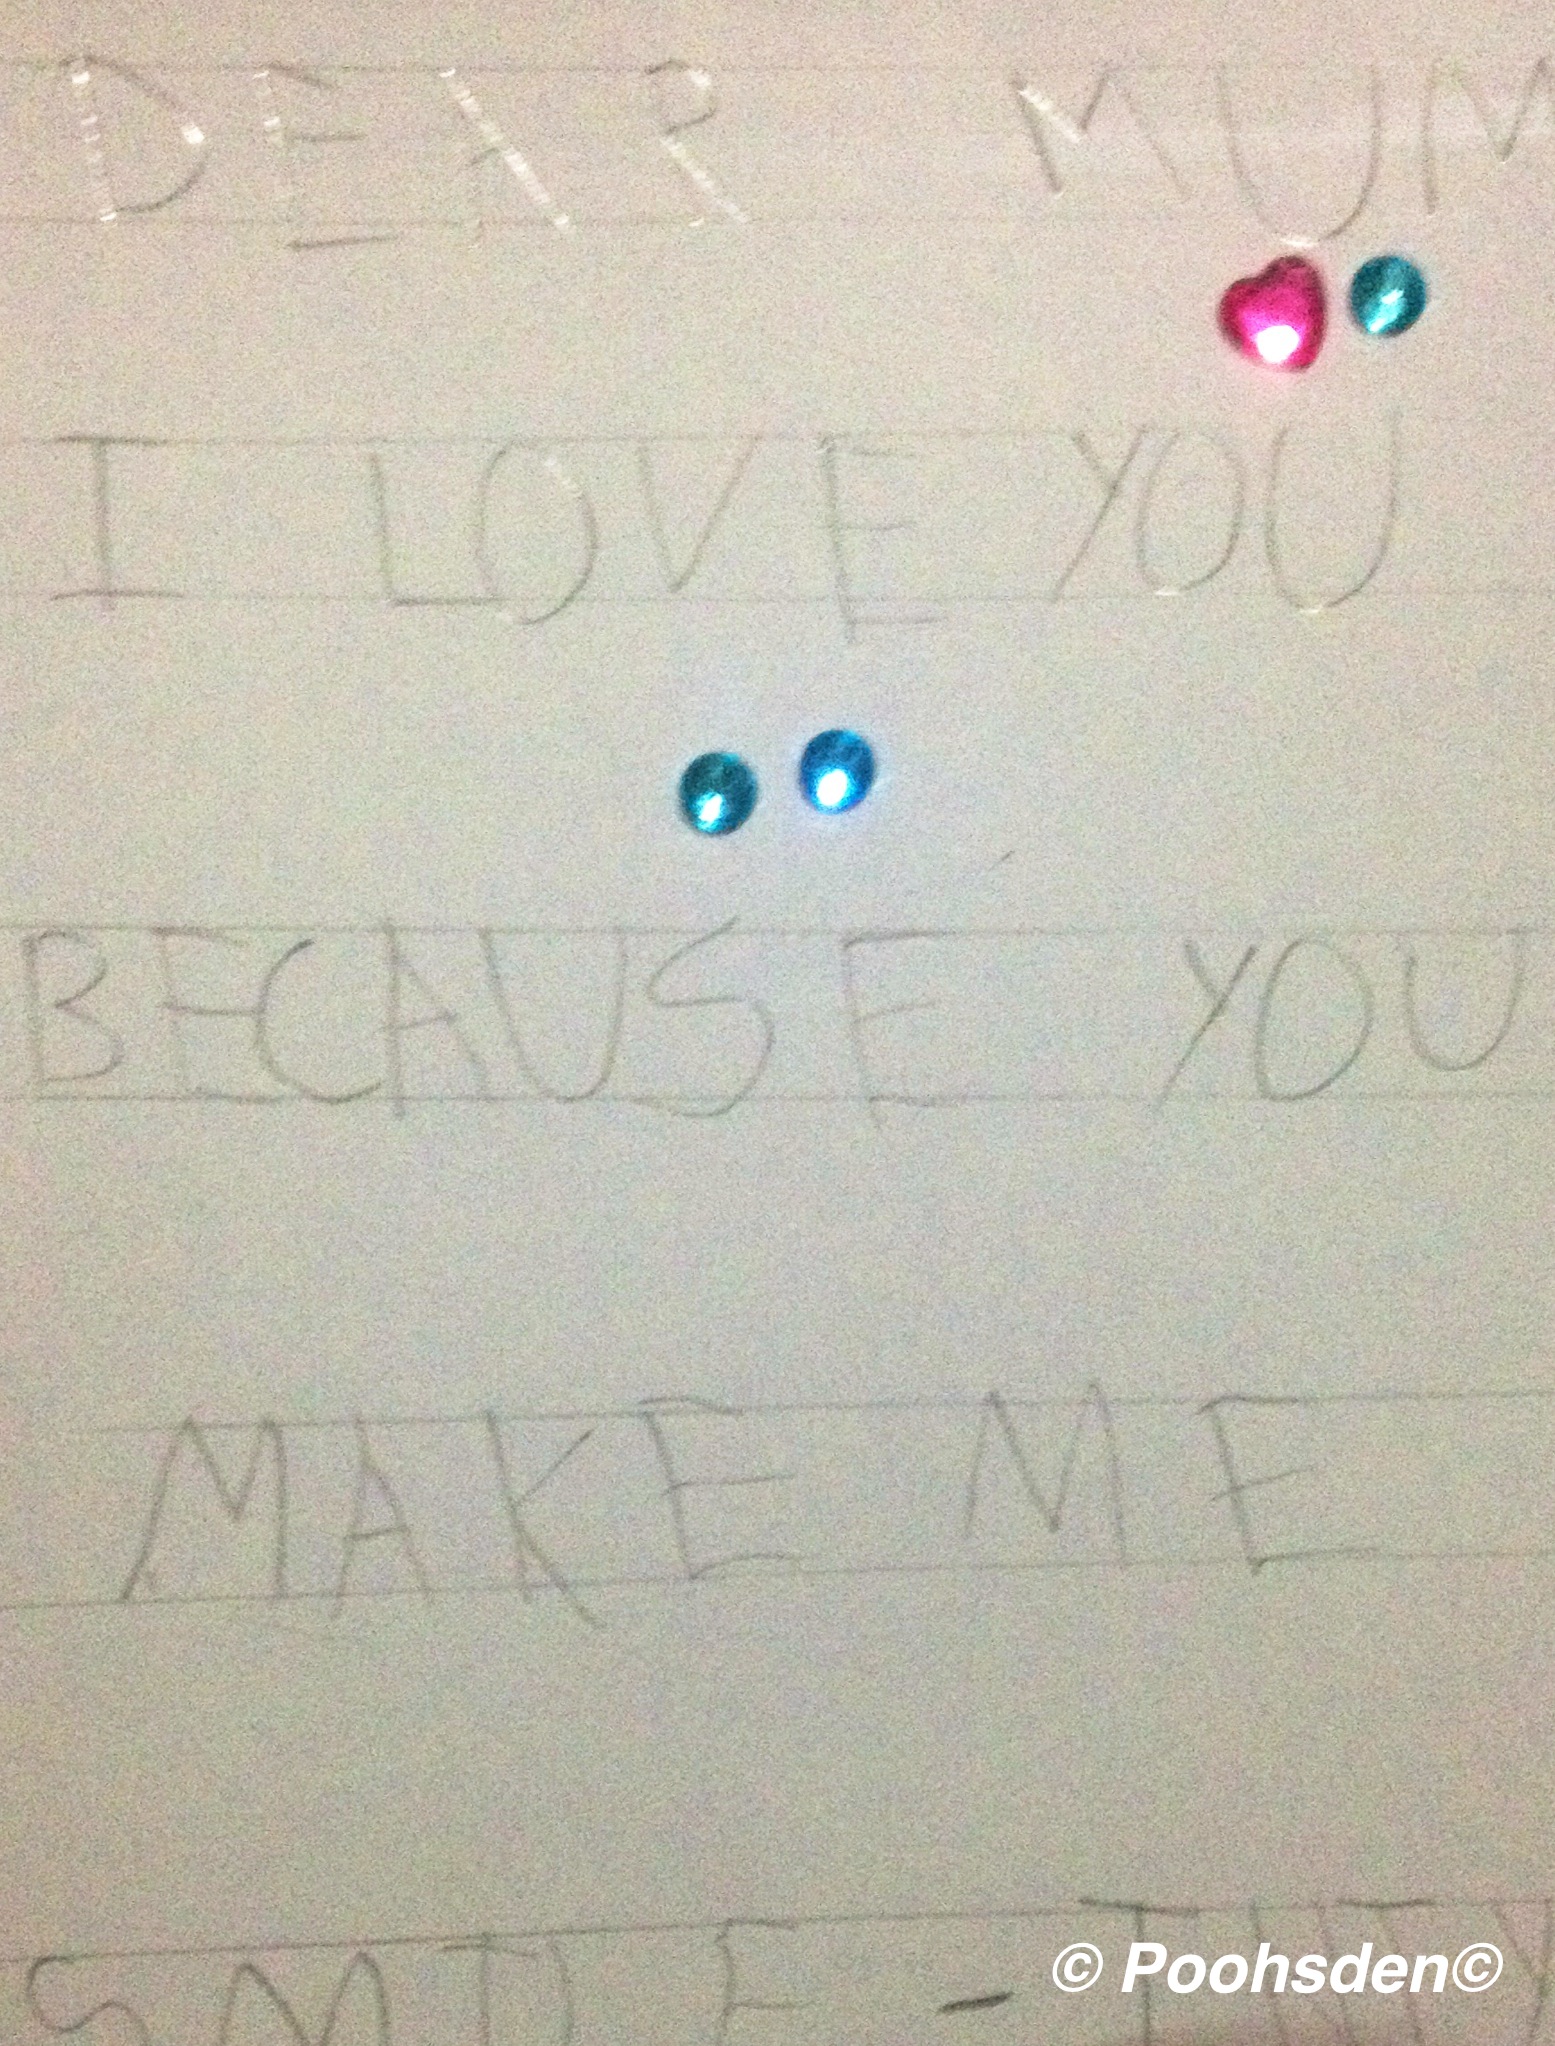 DEAR MUM
I LOVE YOU
BECAUSE YOU
MAKE ME
SMILE -
© Poohsden©